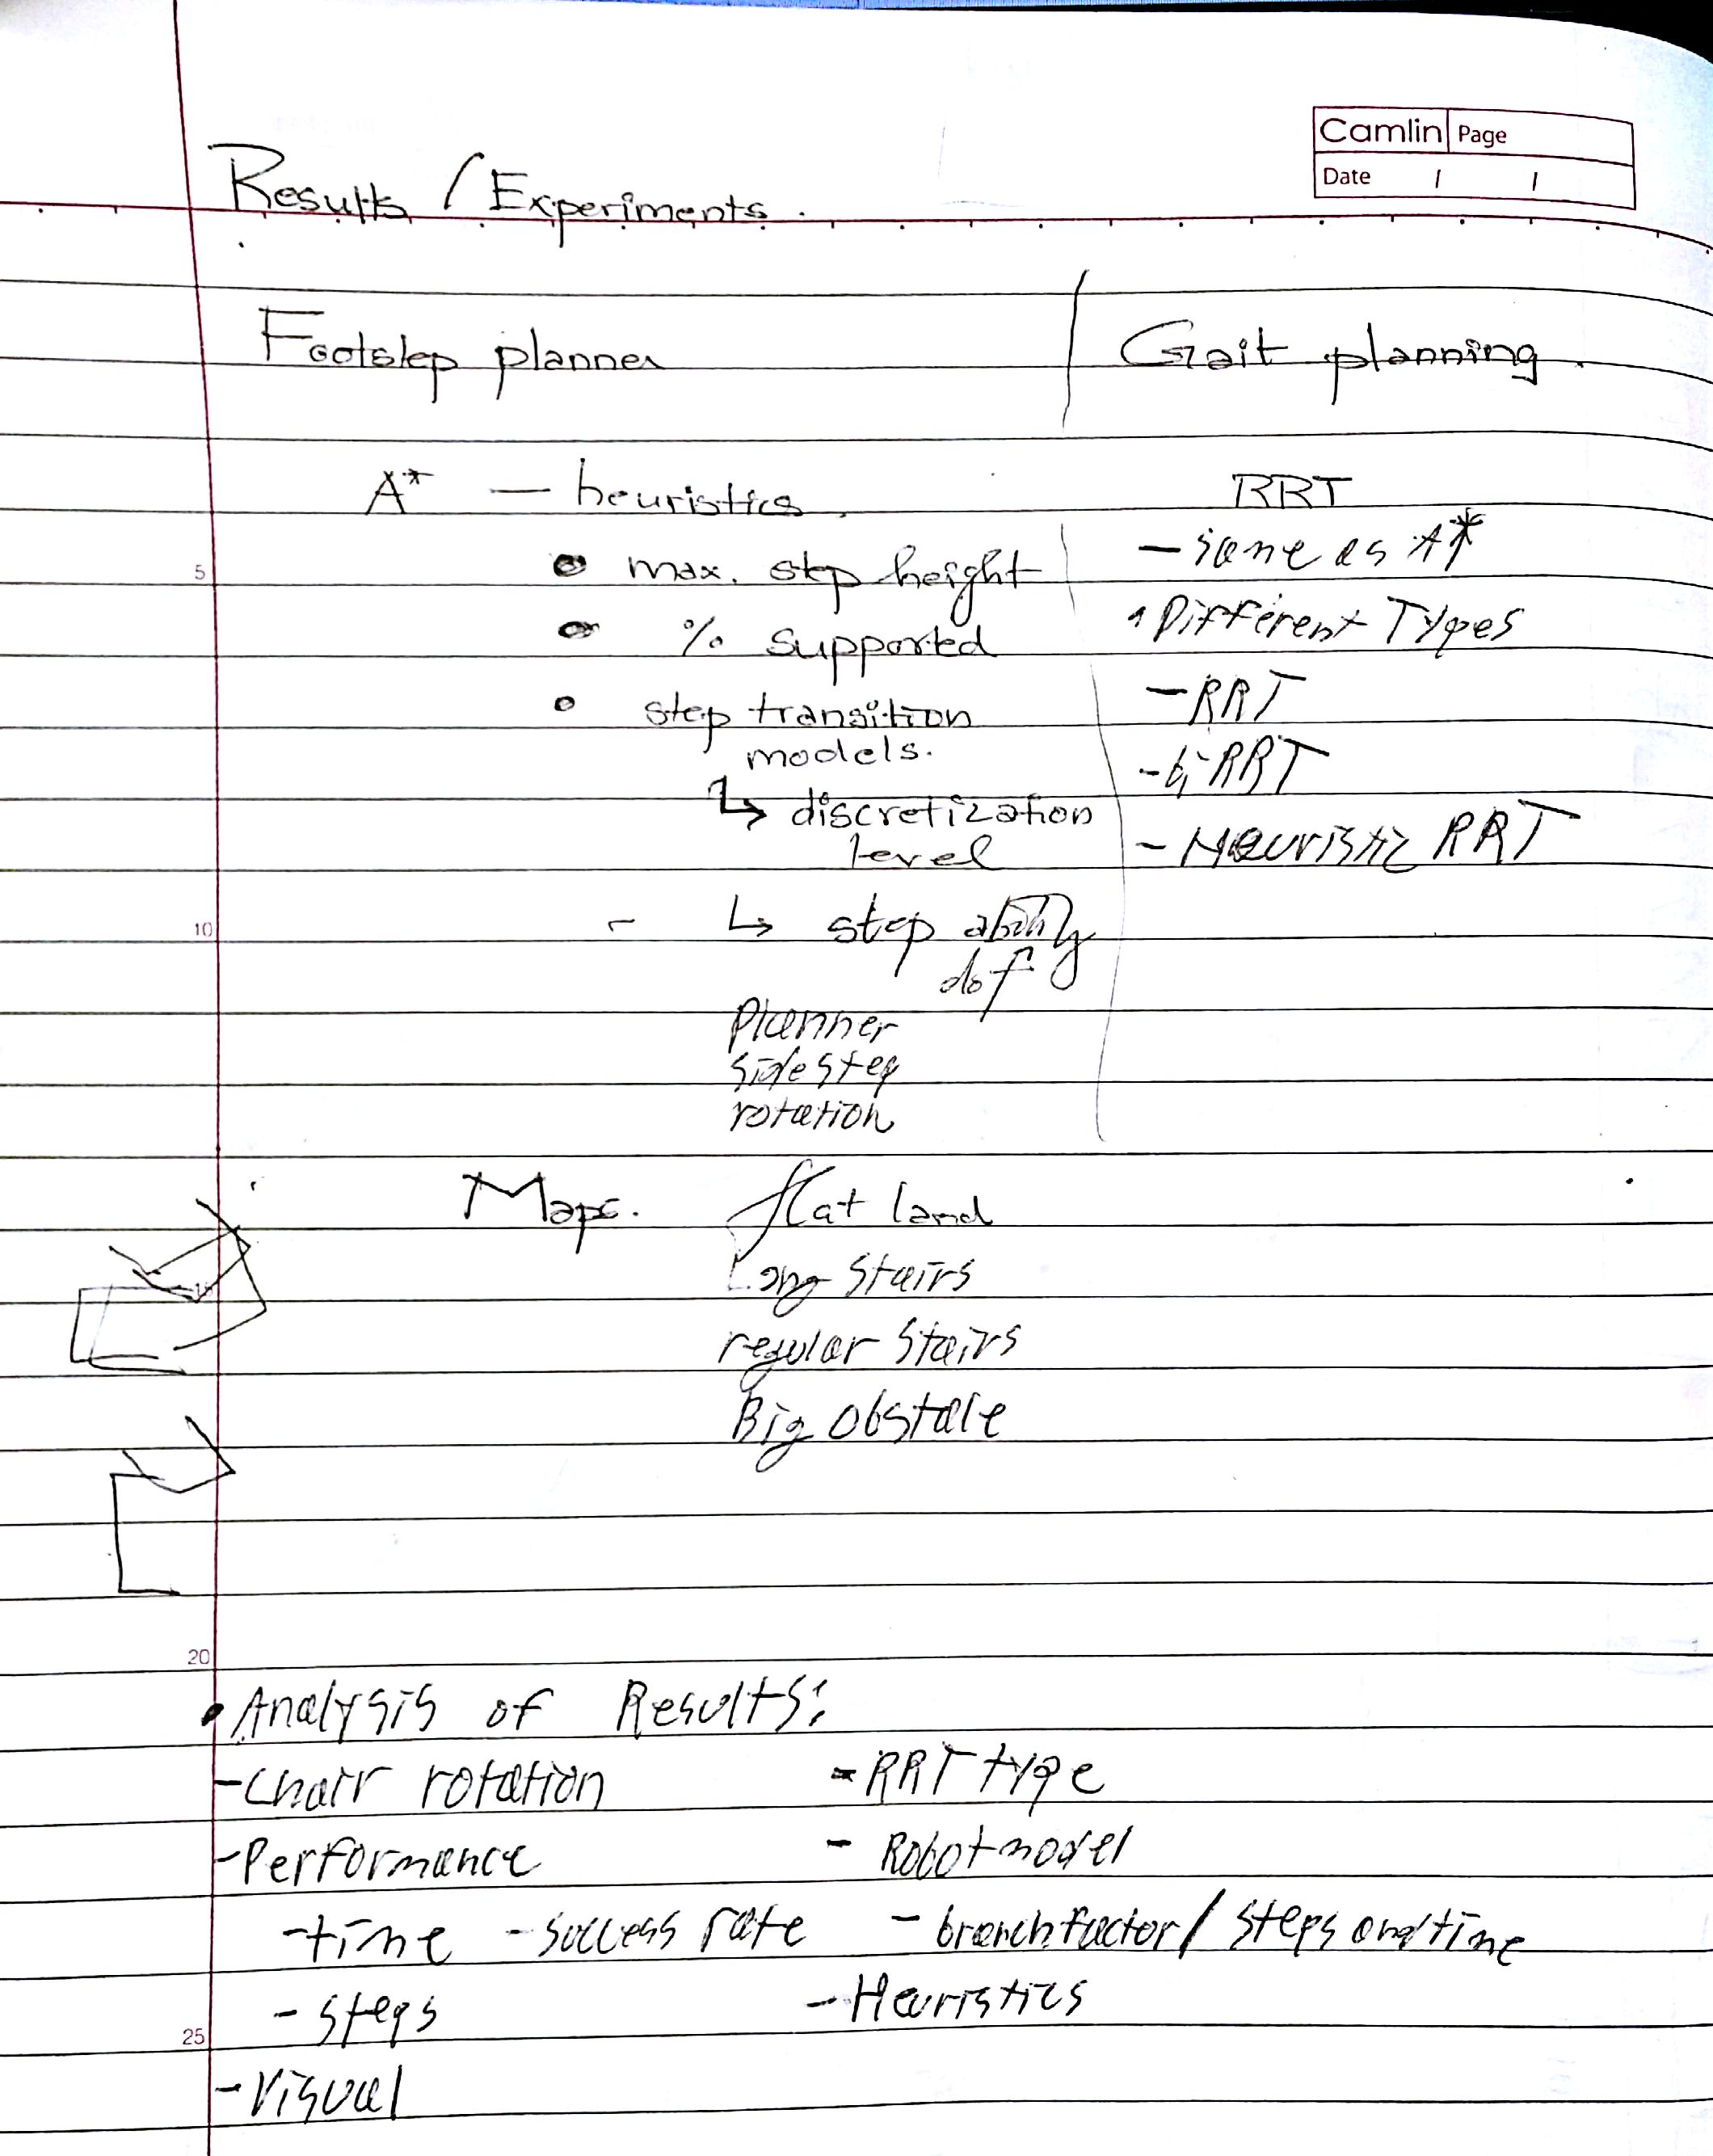 Camlin Page
Date / /
Results / Experiments.
Footstep planner
Gait planning.
A* — heuristics.
• max. step height
• % supported
• step transition
models.
↳ discretization
level
- ↳ step ability
dof
Planner
side step
rotation
RRT
- same as A*
Different Types
- RRT
- bi RRT
- Heuristic RRT
Maps. flat land
Long Stairs
regular stairs
Big Obstale
• Analysis of Results:
- Chair rotation
- Performance
- time - success rate
- steps
- Visual
- RRT type
- Robot model
- branch factor / steps and time
- Heuristics
5
10
15
20
25